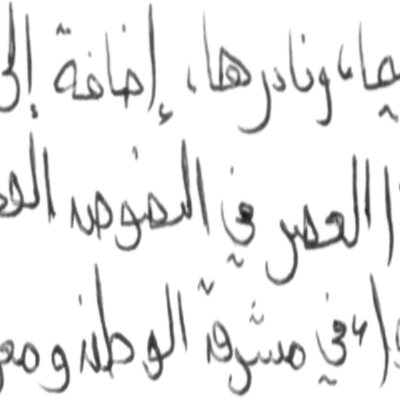 ونادرها، إضافة إلى
العصر في النصوص
في مشرق الوطن و